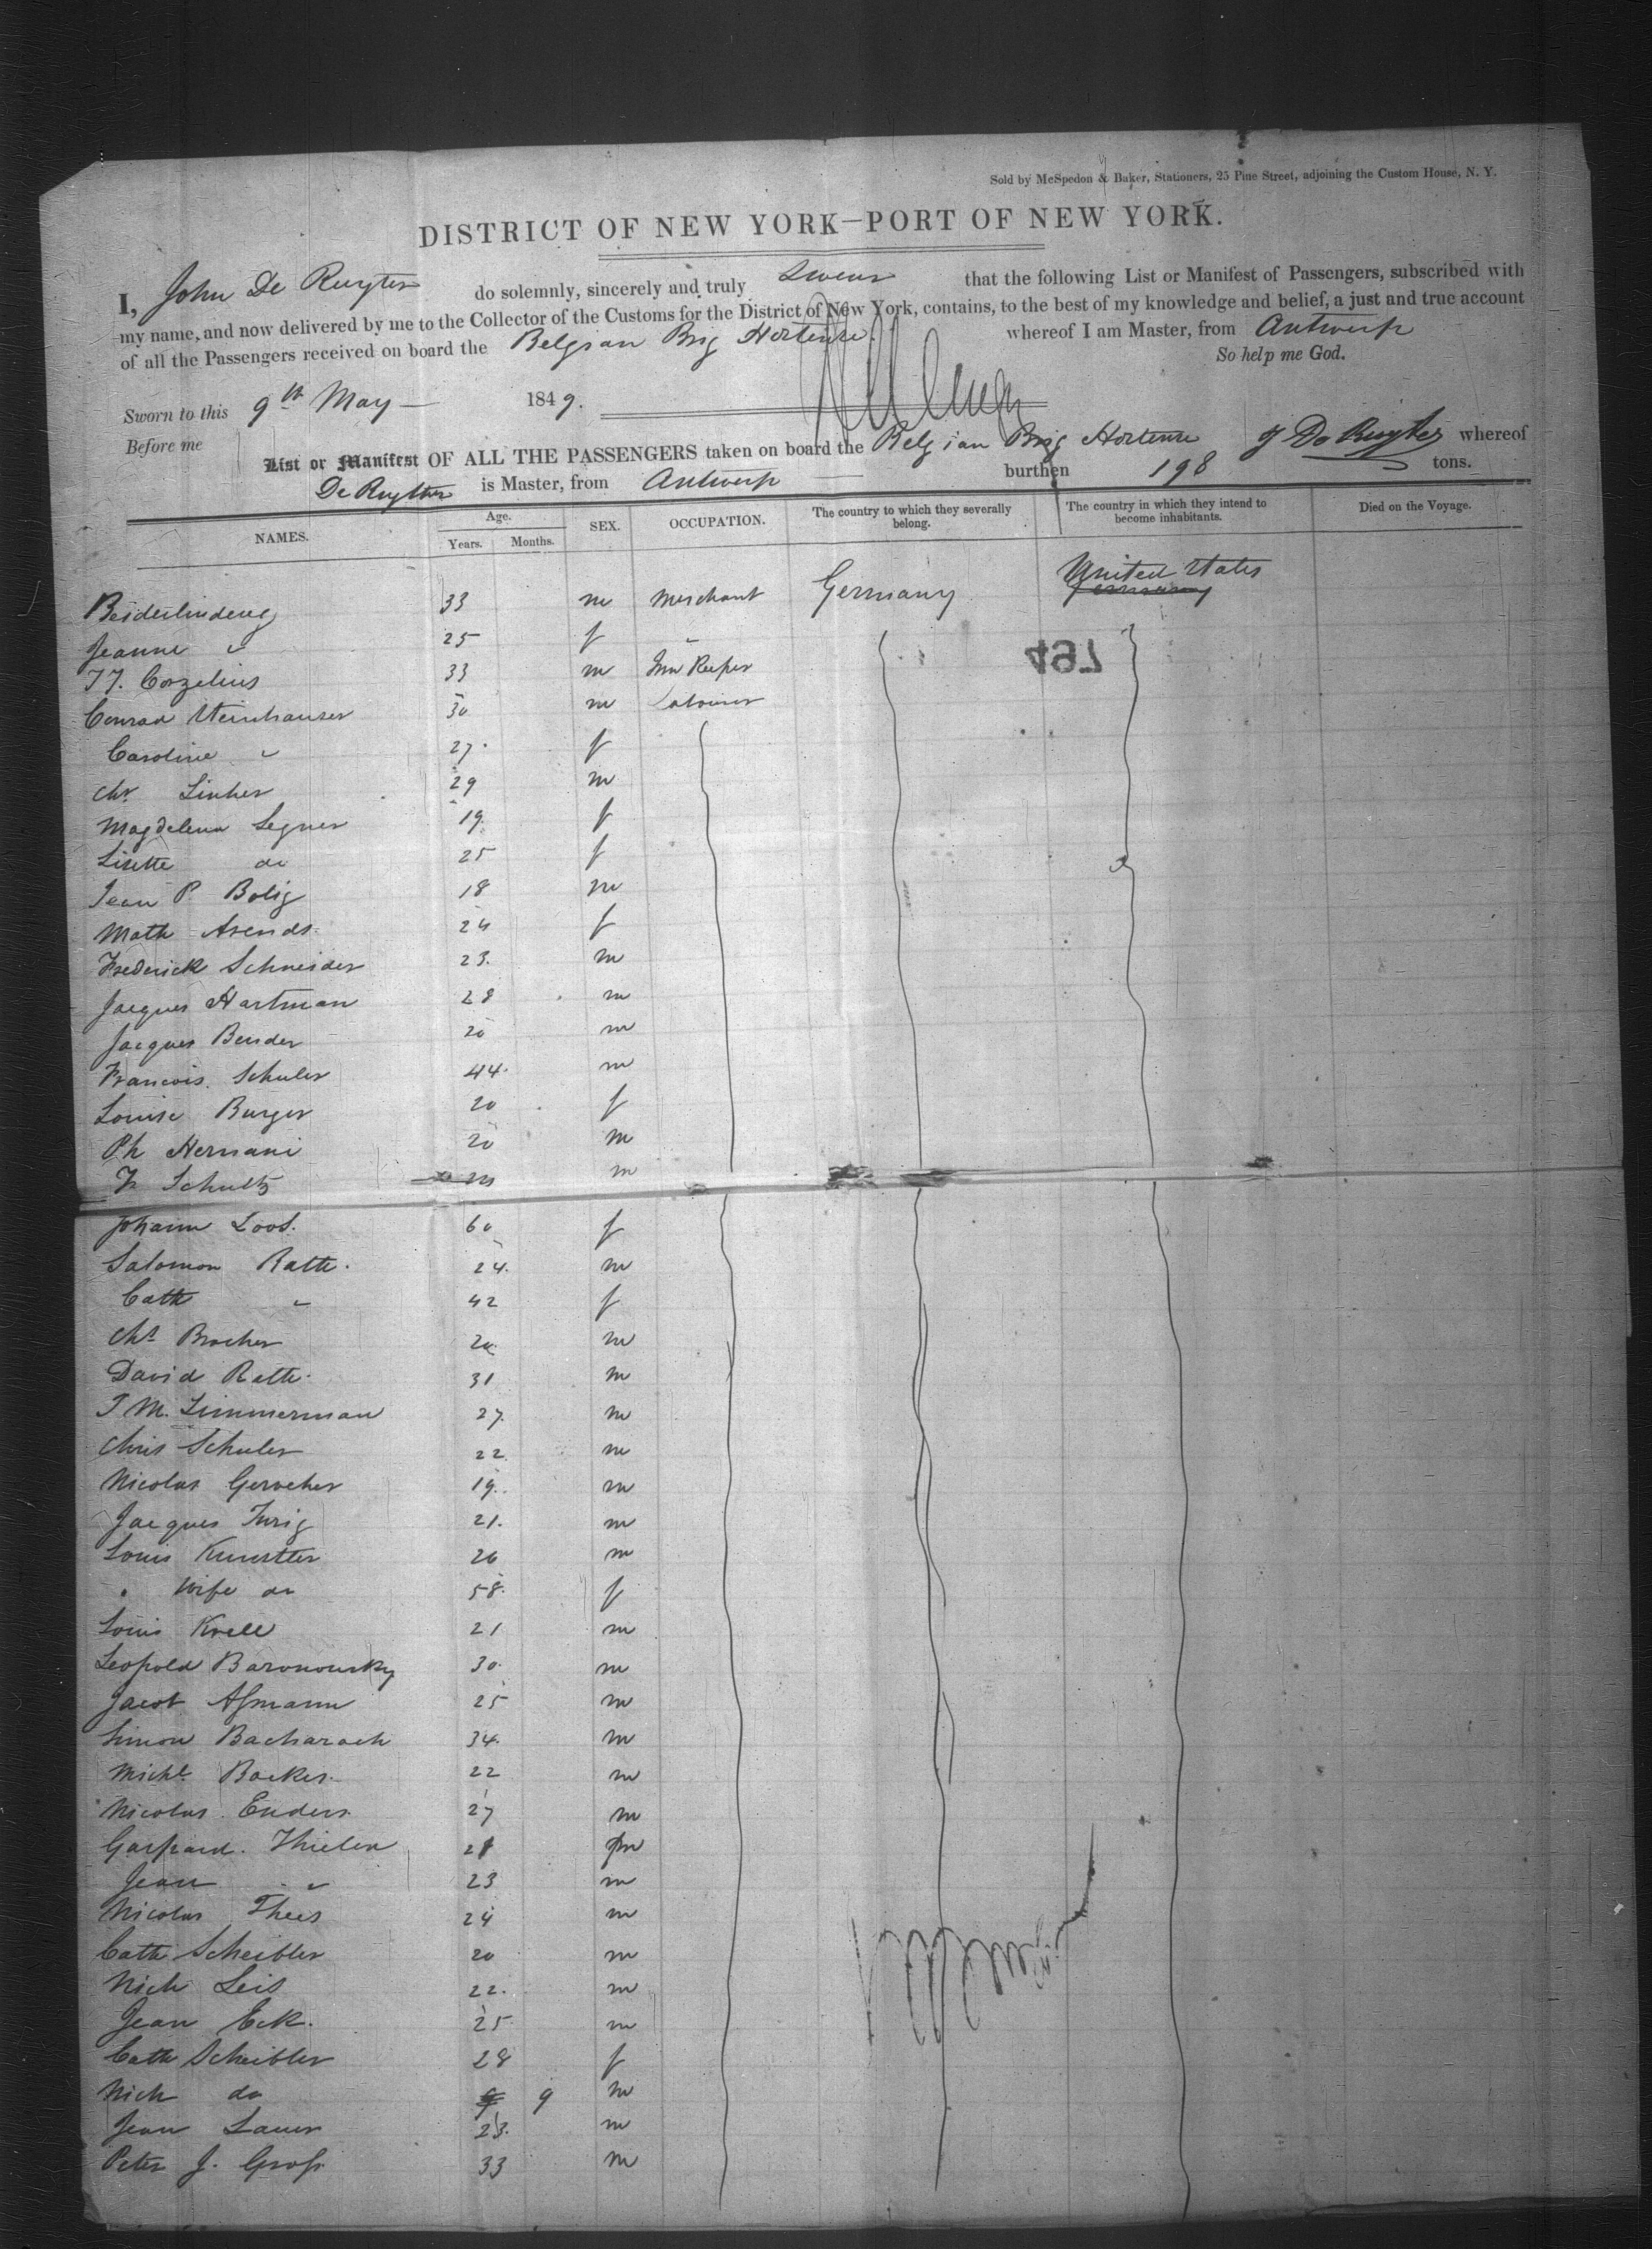 Sold by McSpedon & Baker, Stationers, 25 Pine Street, adjoining the Custom House, N. Y.
DISTRICT OF NEW YORK—PORT OF NEW YORK.
I, John De Ruyter do solemnly, sincerely and truly Swear that the following List or Manifest of Passengers, subscribed with
my name, and now delivered by me to the Collector of the Customs for the District of New York, contains, to the best of my knowledge and belief, a just and true account
of all the Passengers received on board the Belgian Brig Hortense. whereof I am Master, from Antwerp
So help me God.
Sworn to this 9th May 1849.
Before me
J De Ruyter
List or Manifest OF ALL THE PASSENGERS taken on board the Belgian Brig Hortense whereof
De Ruyter is Master, from Antwerp burthen 198 tons.
NAMES. Age. Years. Months. SEX. OCCUPATION. The country to which they severally belong. The country in which they intend to become inhabitants. Died on the Voyage.
Beiderlindeng 33 m Merchant Germany United States Germany
Jeanne " 25 f "
497
J J. Corzelius 33 m Inn Keeper
Conrad Weinhauser 30 m Labourer
Caroline " 27 f
Chr Linker 29 m
Magdelena Legner 19 f
Lisette do 25 f
Jean P Bolig 18 m
Math Arends 24 f
Frederick Schneider 23. m
Jacques Hartman 28 m
Jacques Bender 20 m
Francois. Schuler 44. m
Louise Burger 20 f
Ph Hernani 20 m
Fr Schultz m
Johann Loos. 60 f
Salomon Rath. 24. m
Cath " 42 f
Chs Brocher 20 m
David Rath. 31 m
J M. Zimmerman 27. m
Chris Schuler 22. m
Nicolas Gerocher 19. m
Jacques Turig 21. m
Louis Kunstler 26 m
" Wife do 58. f
Louis Krell 21 m
Leopold Baronowsky 30. m
Jacob Assmann 25 m
Simon Bacharach 34. m
Michl. Backer. 22 m
Nicolas. Enders 27 m
Gaspard. Thielen 21 m
Jean " 23 m
Nicolas Thees 24 m
Cath Scheibler 20 m
Nich Leis 22. m
Jean Eck. 25 m
Cath Scheibler 28 f
Nich do 9 9 m
Jean Lauer 23. m
Peter J. Gross 33 m